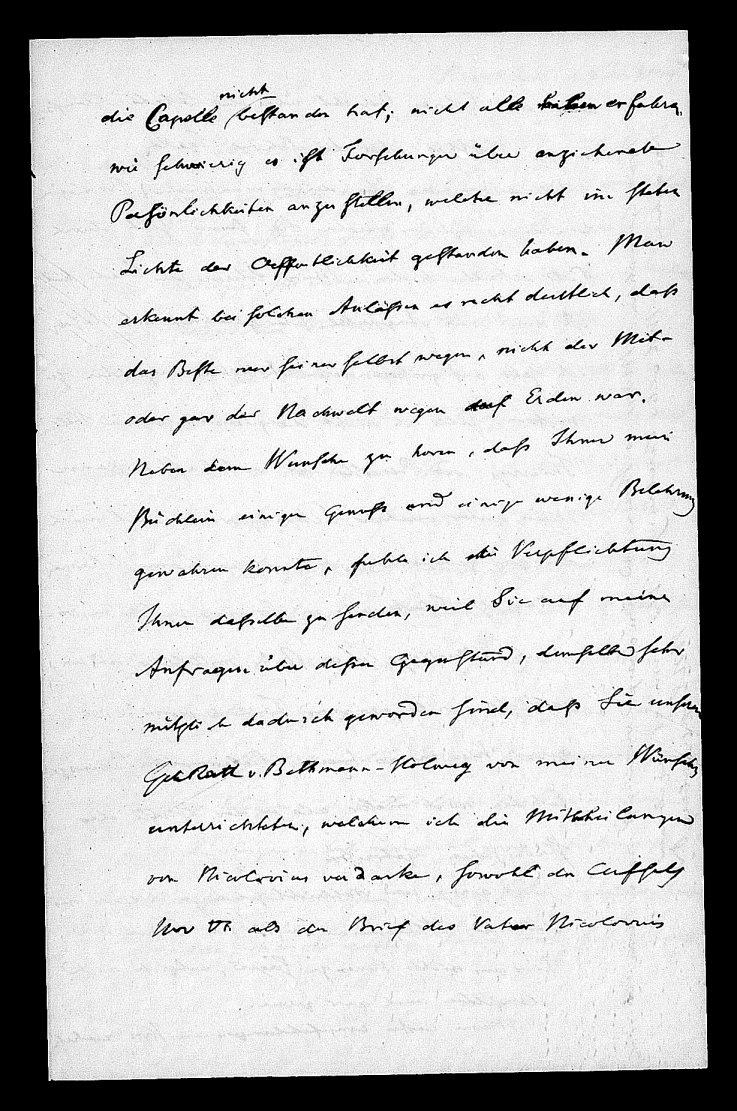 die Capelle nicht bestanden hat; nicht alle haben erfahren,
wie schwierig es ist Forschungen über anziehende
Persönlichkeiten anzustellen, welche nicht im steten
Lichte der Oeffentlichkeit gestanden haben. Man
erkennt bei solchen Anläßen es recht deutlich, daß
das Beste nur seiner selbst wegen, nicht der Mit-
oder gar der Nachwelt wegen auf Erden war.
Neben dem Wunsche zu hören, daß Ihnen mein
Büchlein einigen Genuß und einige wenige Belehrung
gewähren konnte, fühle ich die Verpflichtung
Ihnen dasselbe zu senden, weil Sie auf meine
Anfragen über deßen Gegenstand, demselben sehr
nützlich dadurch geworden sind, daß Sie unsern
GehRath v. Bethmann-Holweg von meinen Wünschen
unterrichteten, welchem ich die Mittheilungen
von Nicolovius verdanke, sowohl den Aufsatz
Nro VI. als den Brief des Vater Nicolovius